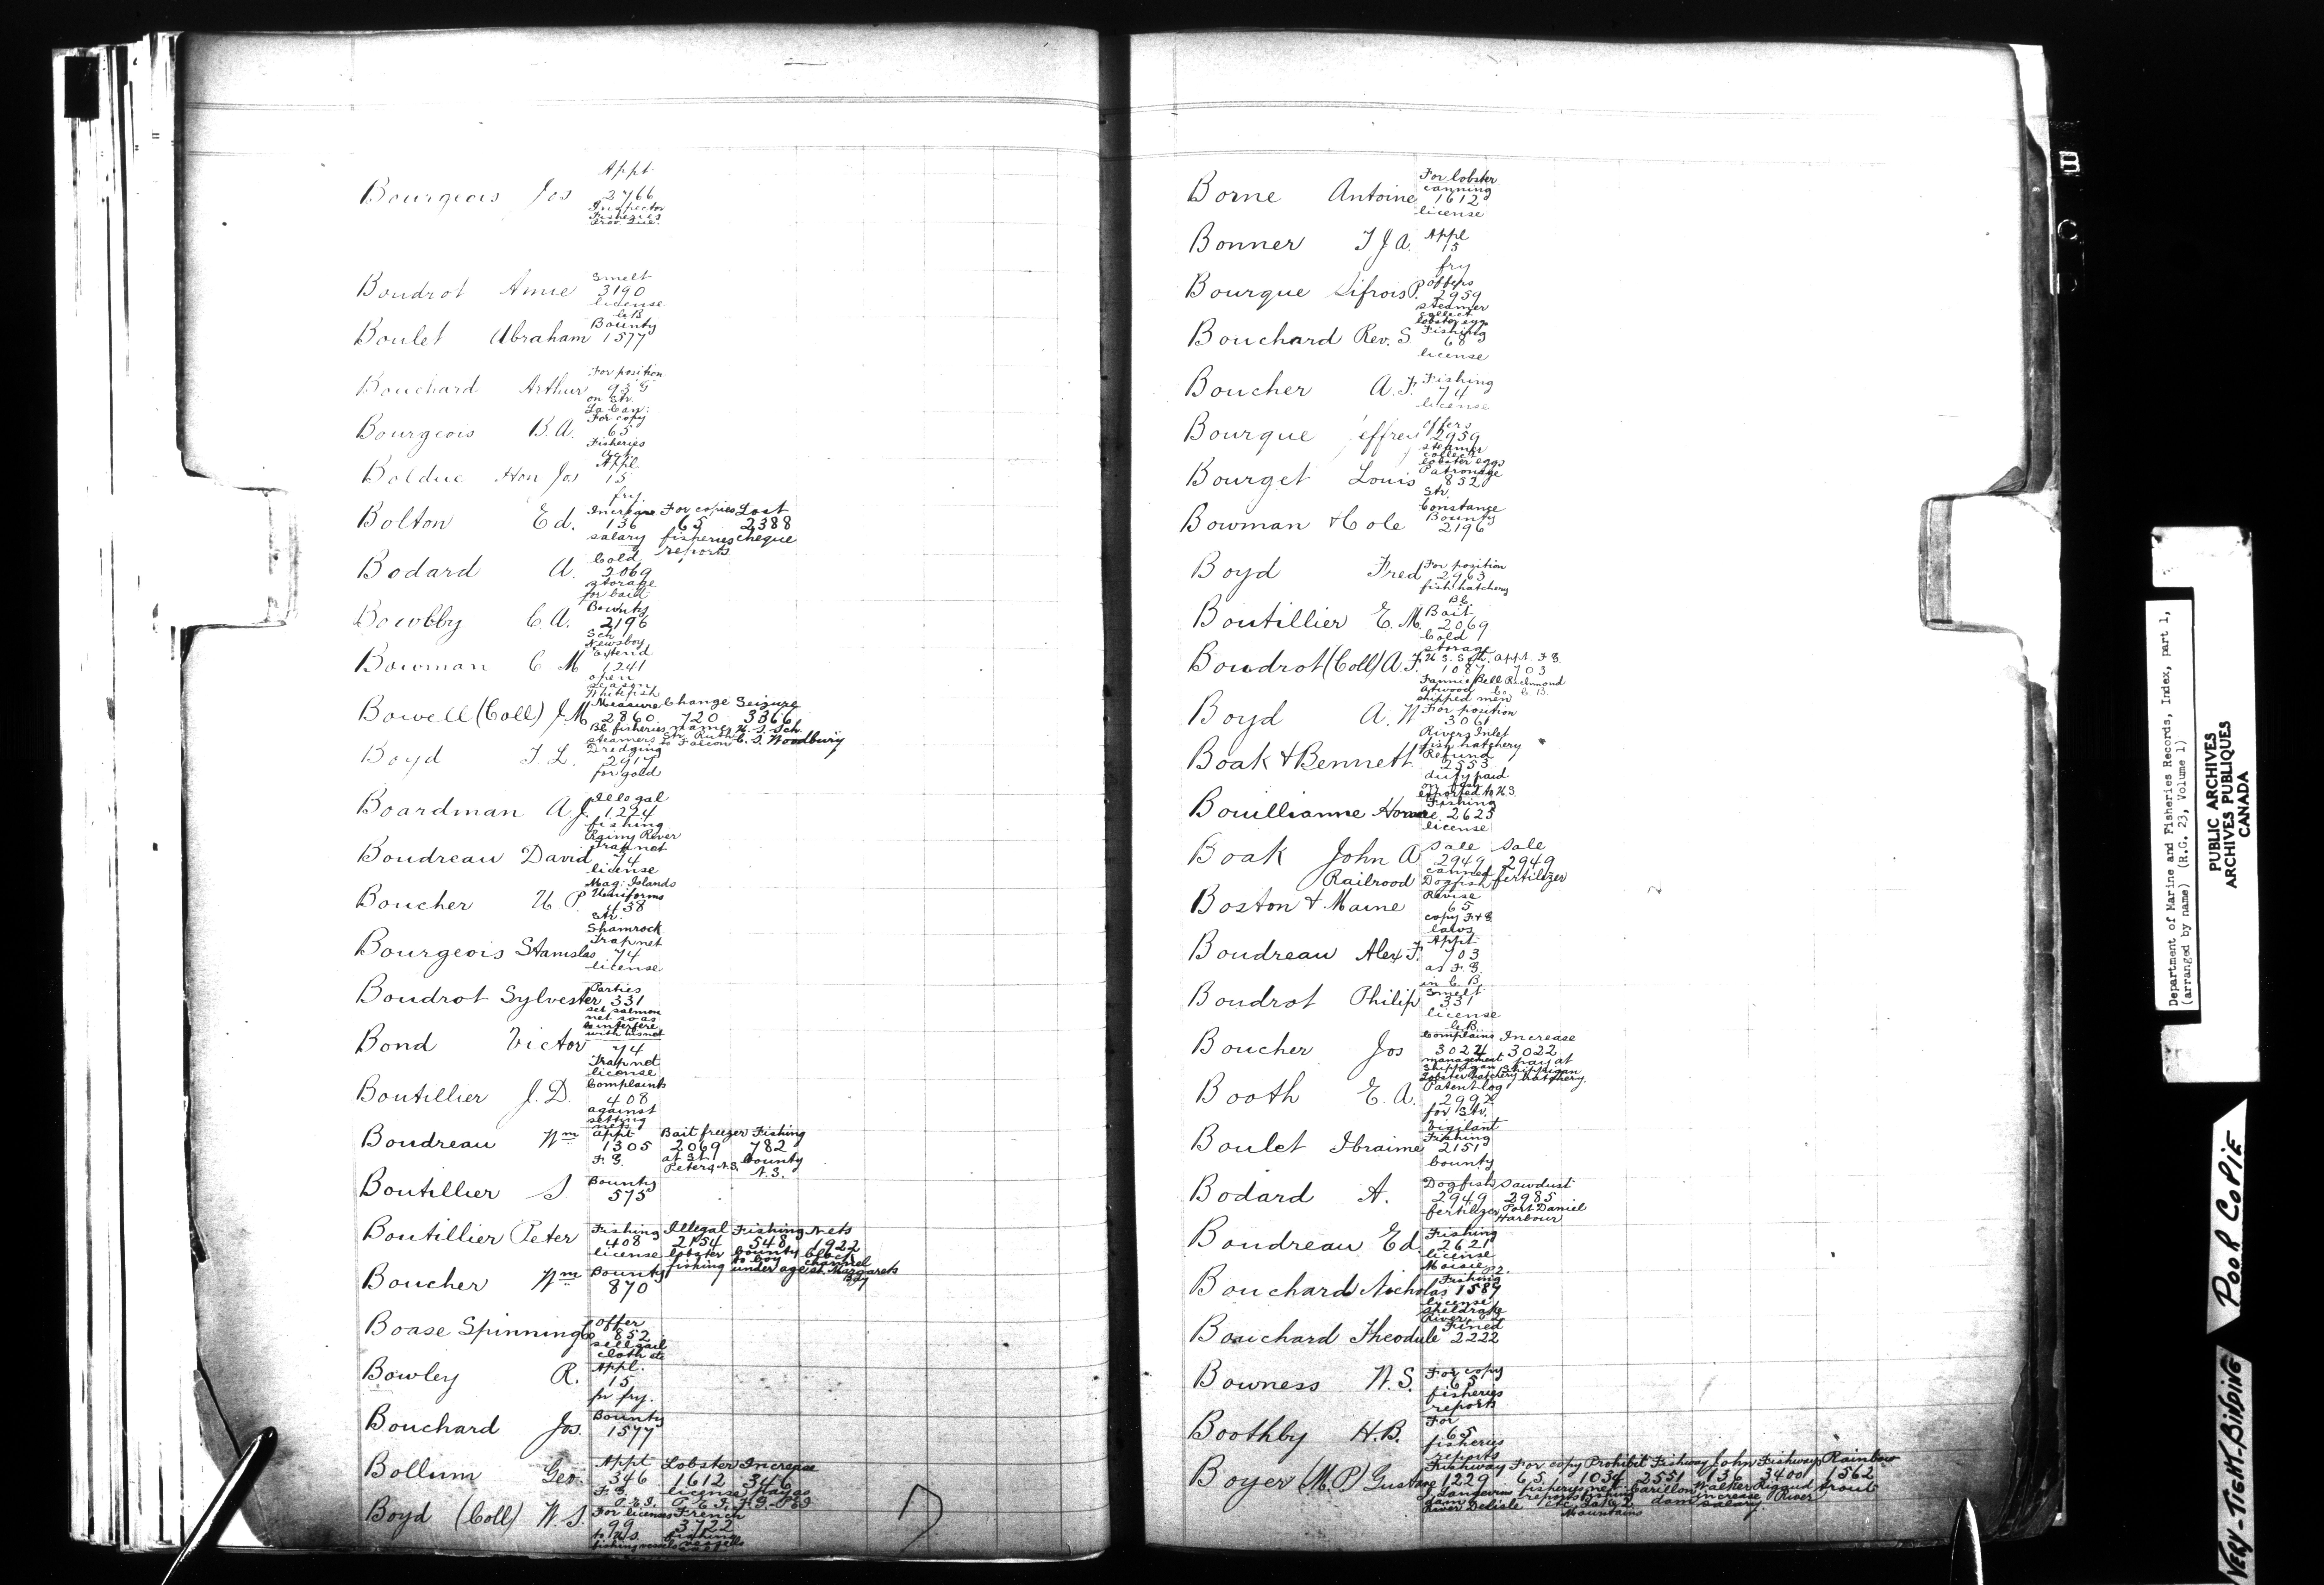 Appt
Bourgeois Jos 2766
Inspector
Fisheries
Prov. Que.
Smelt
Boudrot Anne 3190
license
C.B
Bounty
Boulet Abraham 1577
For position
Bouchard Arthur 959
on Str.
La Can:
For copy
Bourgeois B.A. 65
Fisheries
Act
Appl
Bolduc Hon Jos 15
fry
Increase For copies Lost
Bolton Ed. 136 65 2388
salary fisheries cheque
reports
Cold
Bodard A. 2069
storage
for bait
Bounty
Bowlby C A. 2196
Sch
Newsboy
Extend
Bowman C M 1241
open
season
Whitefish
Measure Change Seizure
Bowell (Coll) J.M 2860 720 3366
BC fisheries name U.S. Sch.
steamers Str. Ruth C. S. Woodbury
to Falcon
Dredging
Boyd T L. 2917
for gold
Illegal
Boardman A.J. 1224
fishing
Rainy River
Trap net
Boudreau David 74
license
Mag: Islands
Uniforms
Boucher U P. 438
Str.
Shamrock
Trap net
Bourgeois Stanislas 74
license
Parties
Boudrot Sylvester 331
set salmon
net so as
to interfere
with his net
Bond Victor 74
Trap net
license
Complaints
Boutillier J. D. 408
against
setting
nets
Appt Bait freezer Fishing
Boudreau Wm 1305 2069 782
F. G. at St. bounty
Peters N.S. N.S.
Bounty
Boutillier S 575
Fishing Illegal Fishing Nets
Boutillier Peter 408 2154 548 1922
license lobster bounty block
fishing to boy channel
under age St. Margarets
Bay
Bounty
Boucher Wm 870
Offer
Boase Spinning Co 852
sell sail
cloth etc
Appl.
Bowley R. 15
for fry.
Bounty
Bouchard Jos. 1577
Appt Lobster Increase
Bollum Geo. 346 1612 346
F. G. license pay as
P.E.I. P.E.I. F.G. P.E.I
For licenses French
Boyd (Coll) W. S. 99 3722
to U.S. fishing
fishing vessels vessels
For lobster
canning
Borne Antoine 1612
license
Appl
Bonner T J A. 15
fry
Offers
Bourgue Lifrois P. 2959
steamer
collect
lobster eggs
Fishing
Bouchard Rev. S 68
license
Fishing
Boucher A. F. 74
license
Offers
Bourgue Jeffrey 2959
steamer
collect
lobster eggs
Patronage
Bourget Louis 852
Str.
Constance
Bounty
Bowman & Cole 2196
For position
Boyd Fred 2963
fish hatchery
BC
Bait
Boutillier E. M. 2069
Cold
storage
U. S. Sch. Appt. F.G.
Boudrot (Coll) A F. 1087 703
Fannie Bell Richmond
Atwood Co. C. B.
shipped men
For position
Boyd A. W 3061
Rivers Inlet
fish hatchery
Refund
Boak & Bennett 2553
duty paid
on fish
exported to U.S.
Fishing
Bouillianne Honoré 2625
license
Sale Sale
Boak John A 2949 2949
canned fertilizer
Railroad Dogfish
Revise
Boston & Maine 65
copy F & G
laws
Appt
Boudreau Alex F. 703
as F. G.
in C. B.
Smelt
Boudrot Philip 331
license
C.B.
Complains Increase
Boucher Jos 3022 3022
management pay at
Shippigan Shippigan
Lobster hatchery hatchery
Patent log
Booth E. A. 2992
for Str.
Vigilant
Fishing
Boulet Ibraime 2151
bounty
Dogfish Sawdust
Bodard A. 2949 2985
fertilizer Port Daniel
Harbour
Fishing
Boudreau Ed. 2621
license
Moisie P2.
Fishing
Bouchard Nicholas 1587
license
Sheldrake
River
Fined
Bouchard Theodule 2222
For copy
Bowness W. S. 65
fisheries
reports
For
Boothby H.B. 65
fisheries
reports
Fishway For copy Prohibit Fishway John Fishway Rainbow
Boyer (M.P) Gustave 1229 65 1034 2551 136 3400 1562
Langevins fisheries net Carillon Walker Rigaud trout
dam reports fishing dam increase River
River Delisle etc. Lake 2 salary
Mountains
B
C
D
Department of Marine and Fisheries Records, Index, part 1,
(arranged by name) (R.G. 23, Volume 1)
PUBLIC ARCHIVES
ARCHIVES PUBLIQUES
CANADA
POOR COPIE
VERY-TIGHT-BINDING